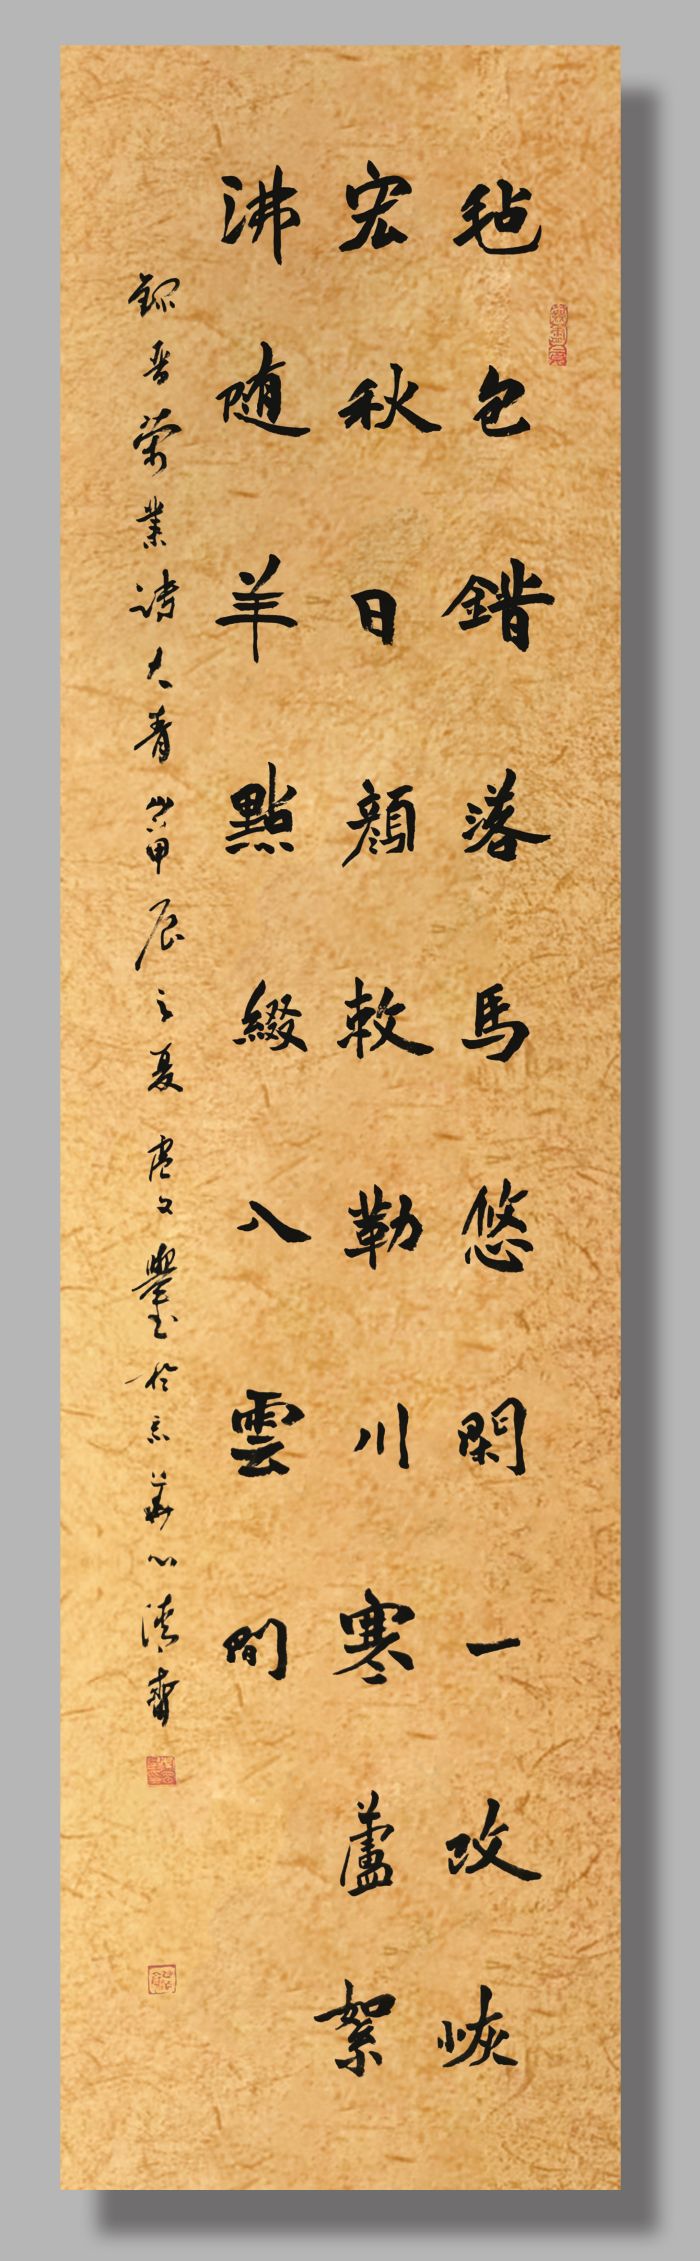 毡包錯落馬悠閑一改恢
宏秋日顔敕勒川寒蘆絮
沸随羊點綴入雲間
錄晋榮業詩大青山甲辰之夏唐文鑾於京華心清齋